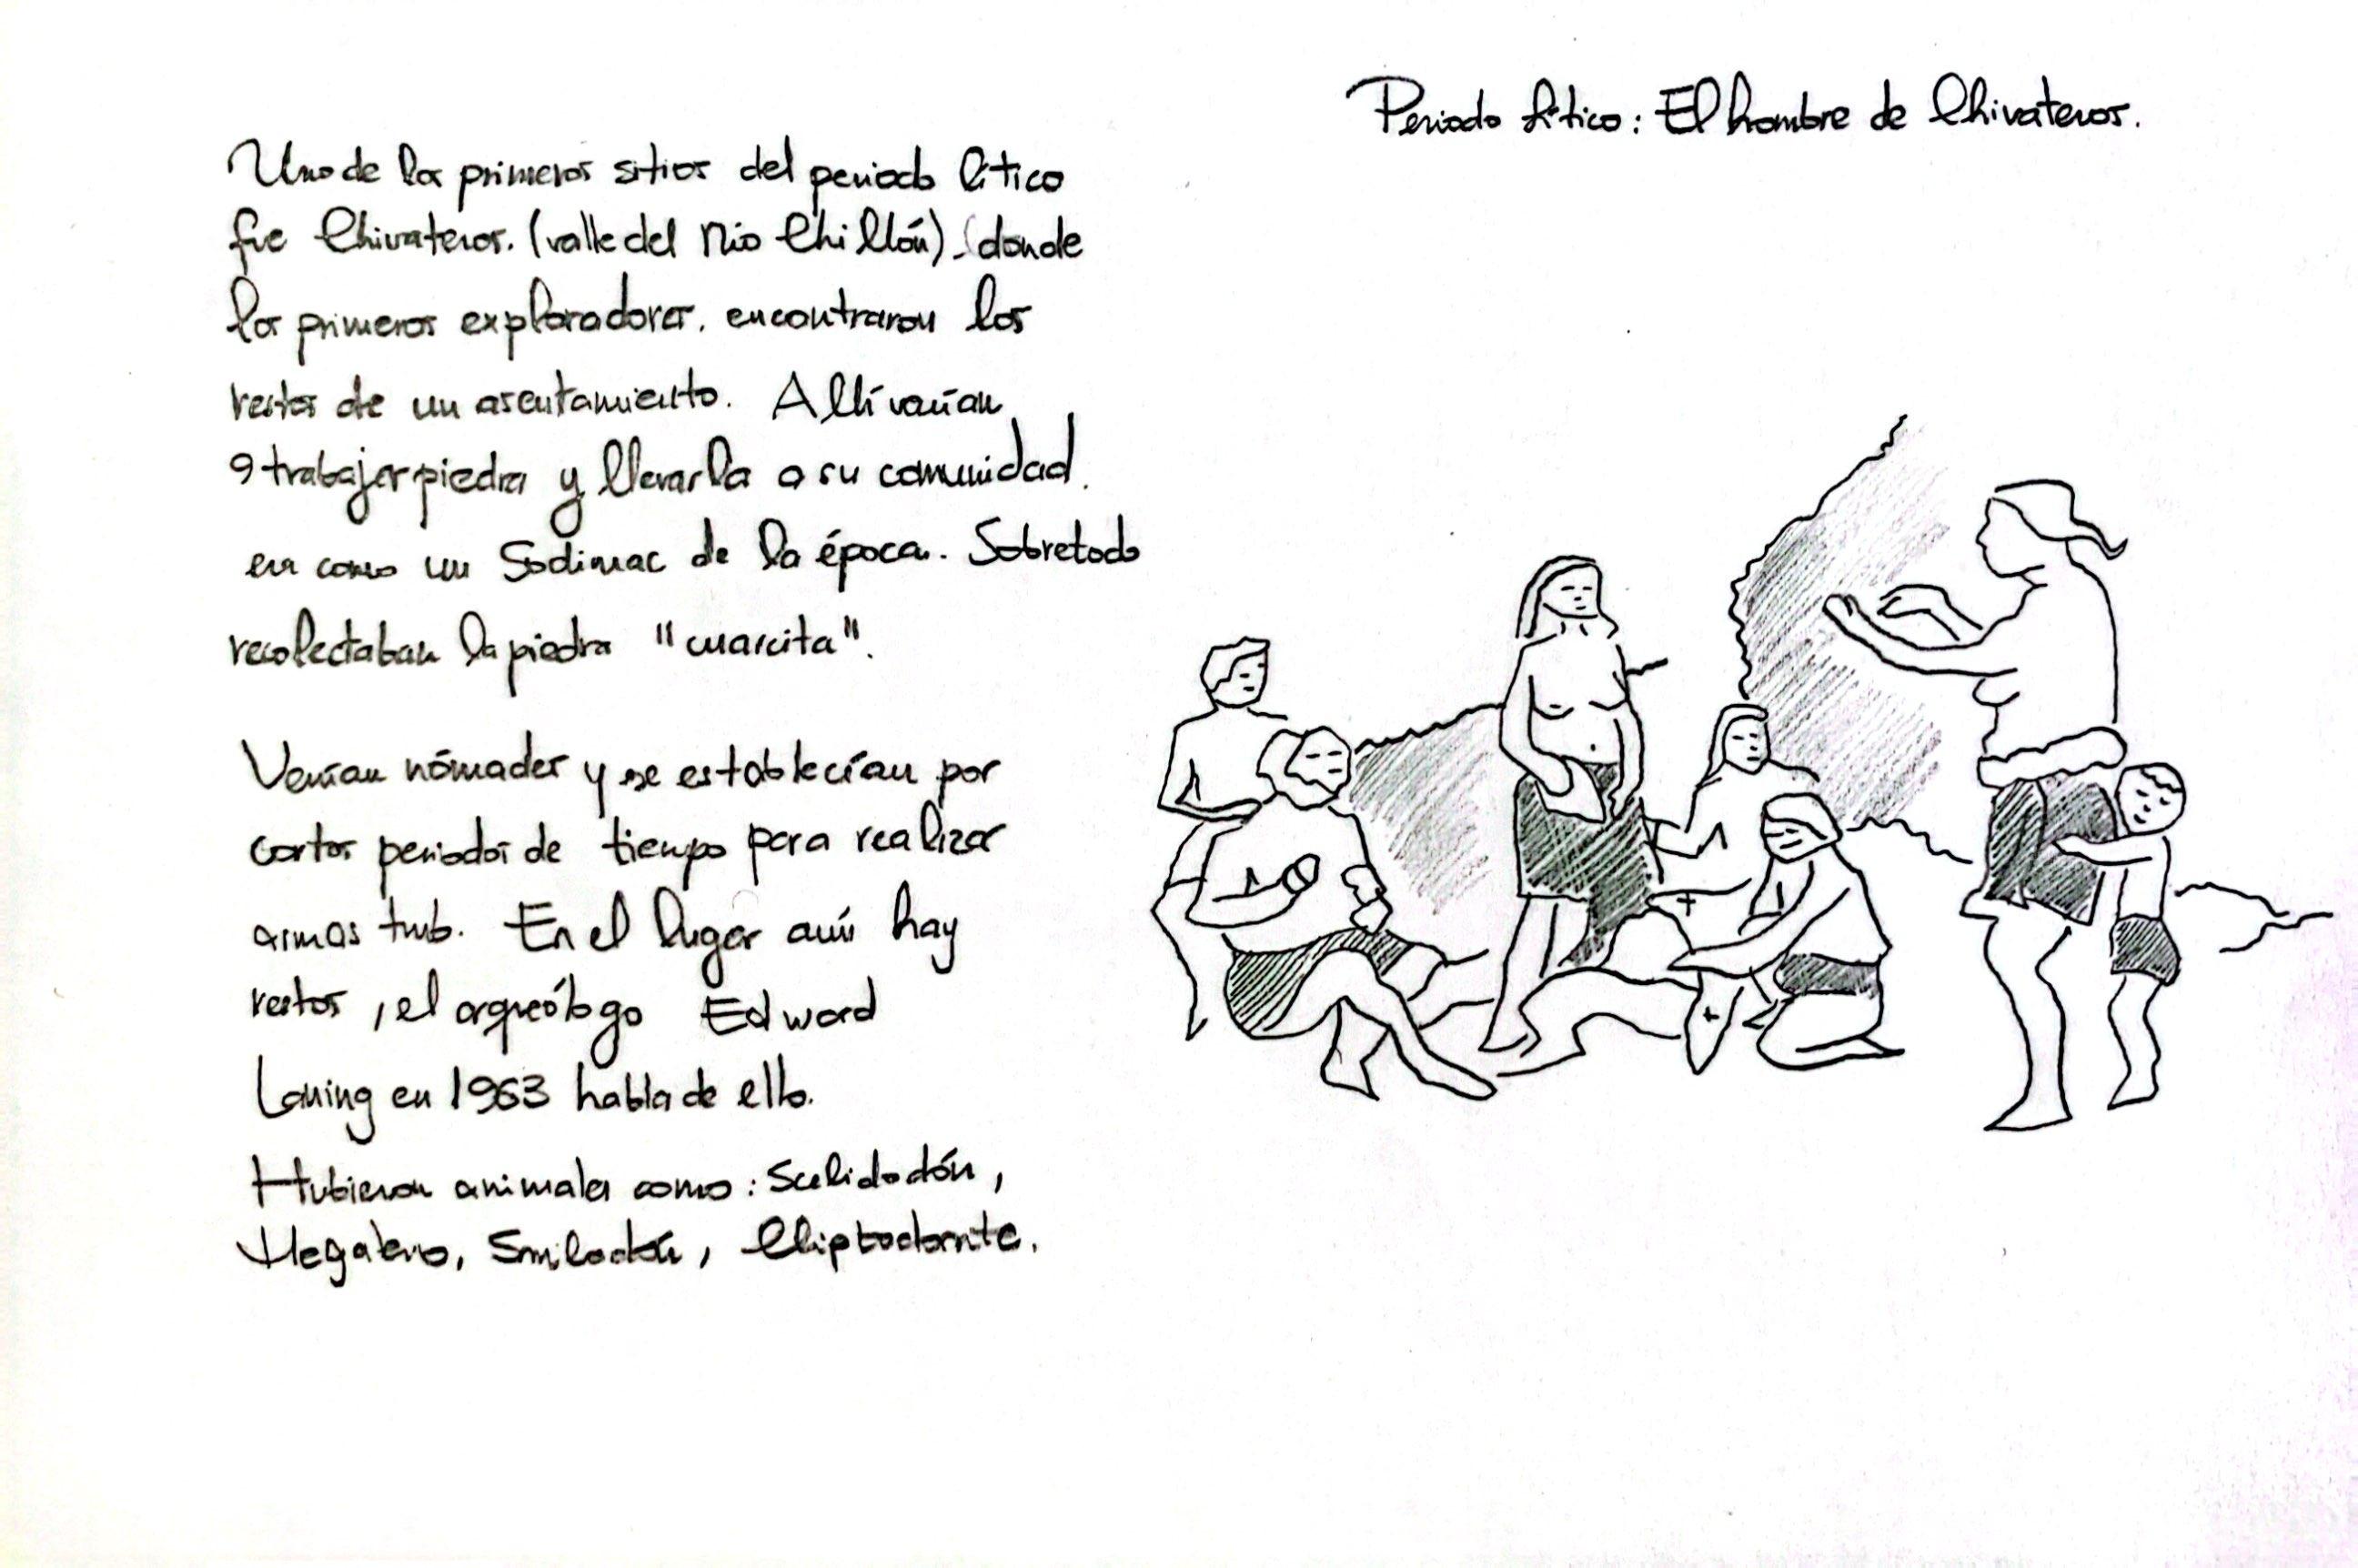 Periodo lítico: El hombre de Chivateros.
Uno de los primeros sitios del periodo lítico
fue Chivateros. (valle del Río Chillón). (donde
los primeros exploradores. encontraron los
restos de un asentamiento. Allí varían
a trabajar piedra y llevarla a su comunidad.
era como un Sodimac de la época. Sobretodo
recolectaban la piedra "cuarcita".
Venían nómades y se establecían por
cortos periodos de tiempo para realizar
armas tmb. En el lugar aún hay
restos, el arqueólogo Edward
Laning en 1963 habla de ello.
Hubieron animales como: Scelidodón,
Megaterio, Smilodón, Gliptodonte.